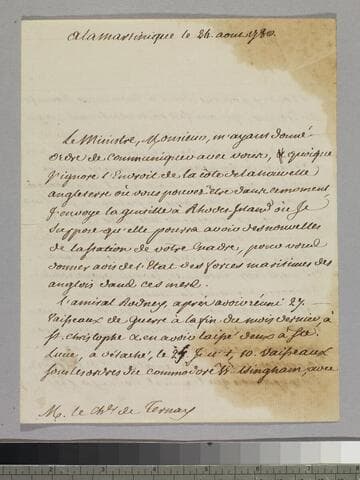 a la martinique le 24 aout 1780
Le Ministre, Monsieur, m'ayant donné
ordre de communiquer avec vous, quoique
J'ignore l'Endroit de la côte de la nouvelle
angleterre où vous pouvez être dans ce moment
J'envoye la guville à Rhodes Island où Je
suppose que elle pourra avoir des nouvelles
de la station de votre Escadre, pour vous
donner avis de l'Etat des forces maritimes des
anglois dans ces mers.
L'amiral Rodney, après avoir réuni 27.
Vaisseaux de Guerre à la fin du mois dernier, à
St. christophe & en avoir laissé deux à Ste.
lucie, a détaché, le 10. Vaisseaux
sous les ordres du commodore Walsingham, avec
M. le Chr. de Ternay